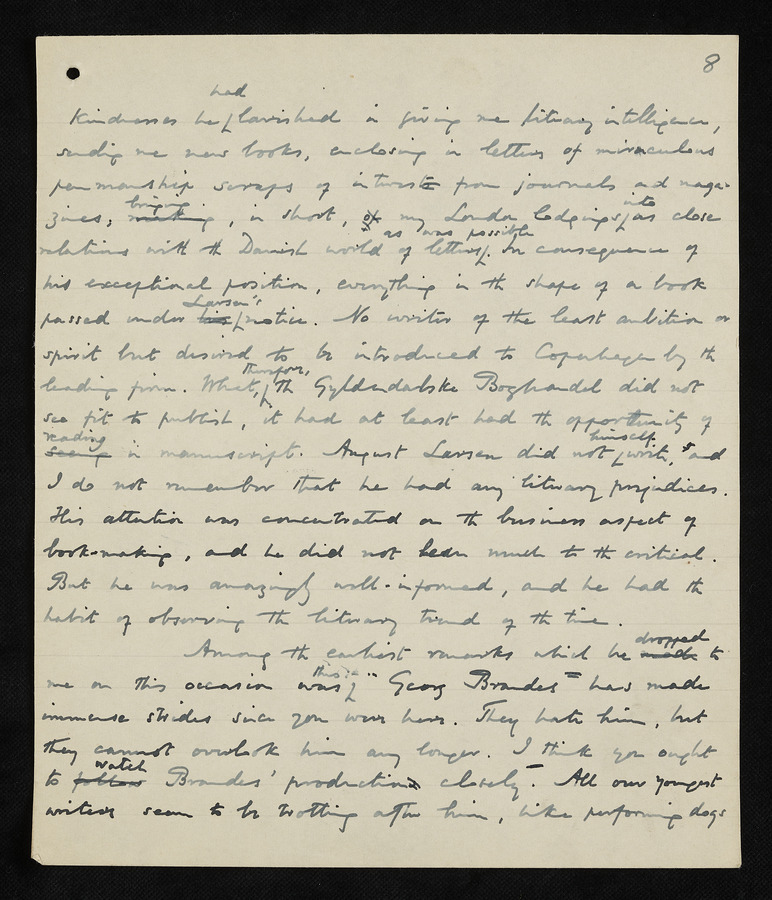 8
had
kindnesses he lavished in giving me literary intelligence,
sending me new books, enclosing in letters of miraculous
penmanship scraps of interest from journals and maga-
bringing into
zines; making, in short, of my London lodgings as close
as was possible
relations with the Danish world of letters. In consequence of
his exceptional position, everything in the shape of a book
Larsen's
passed under his notice. No writer of the least ambition or
spirit but desired to be introduced to Copenhagen by the
therefore,
leading firm. What, the Gyldendalske Boghandel did not
see fit to publish, it had at least had the opportunity of
reading himself
seeing in manuscript. August Larsen did not write, and
I do not remember that he had any literary prejudices.
His attention was concentrated on the business aspect of
book-making, and he did not lean much to the critical.
But he was amazingly well-informed, and he had the
habit of observing the literary trend of the time.
dropped
Among the earliest remarks which he made to
this:-
me on this occasion was "Georg Brandes has made
immense strides since you were here. They hate him, but
they cannot overlook him any longer. I think you ought
watch
to follow Brandes' production closely. All our youngest
writers seem to be trotting after him, like performing dogs